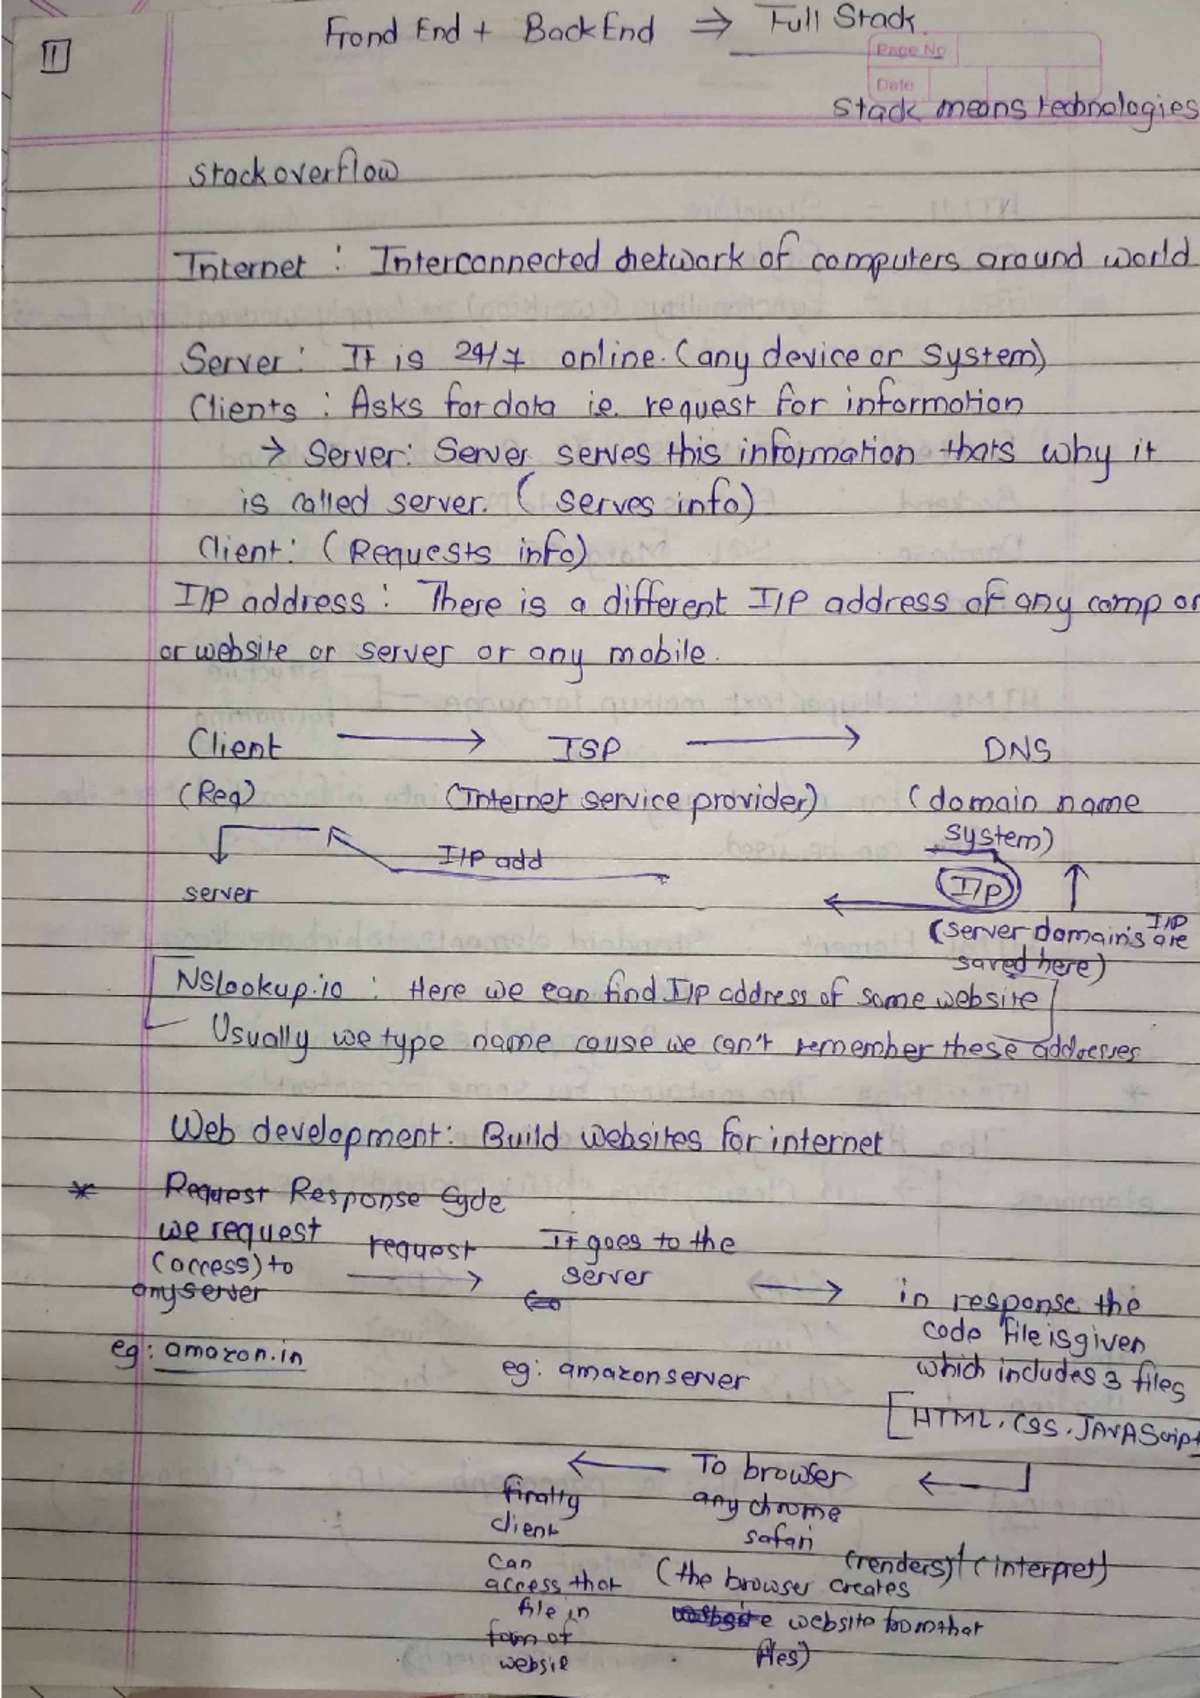 1
Frond End + Back End ⇒ Full Stack.
Page No
Date
Stack means technologies
Stack overflow
Internet : Interconnected network of computers around world
Server : It is 24/7 online. (any device or system)
Clients : Asks for data ie. request for information
→ Server: Server serves this information thats why it
is called server. ( serves info)
Client: (Requests info)
I/P address : There is a different I/P address of any comp or
or website or server or any mobile.
Client → ISP → DNS
(Req) (Internet service provider) (domain name
system)
I/P add
I/P
server
(server domain's I/P are
saved here)
NSlookup.io : Here we can find I/p address of some website
Usually we type name cause we can't remember these addresses
Web development: Build websites for internet
* Request Response Cycle
we request
(access) to
any server
request →
It goes to the
server
→ in response the
code file is given
which includes 3 files
[HTML, CSS, JAVAScript
eg: amazon.in
eg: amazon server
← To browser ←
any chrome
safari
(renders) (interpret)
(the browser creates
website from that
files)
finally
client
can
access that
file in
form of
websie